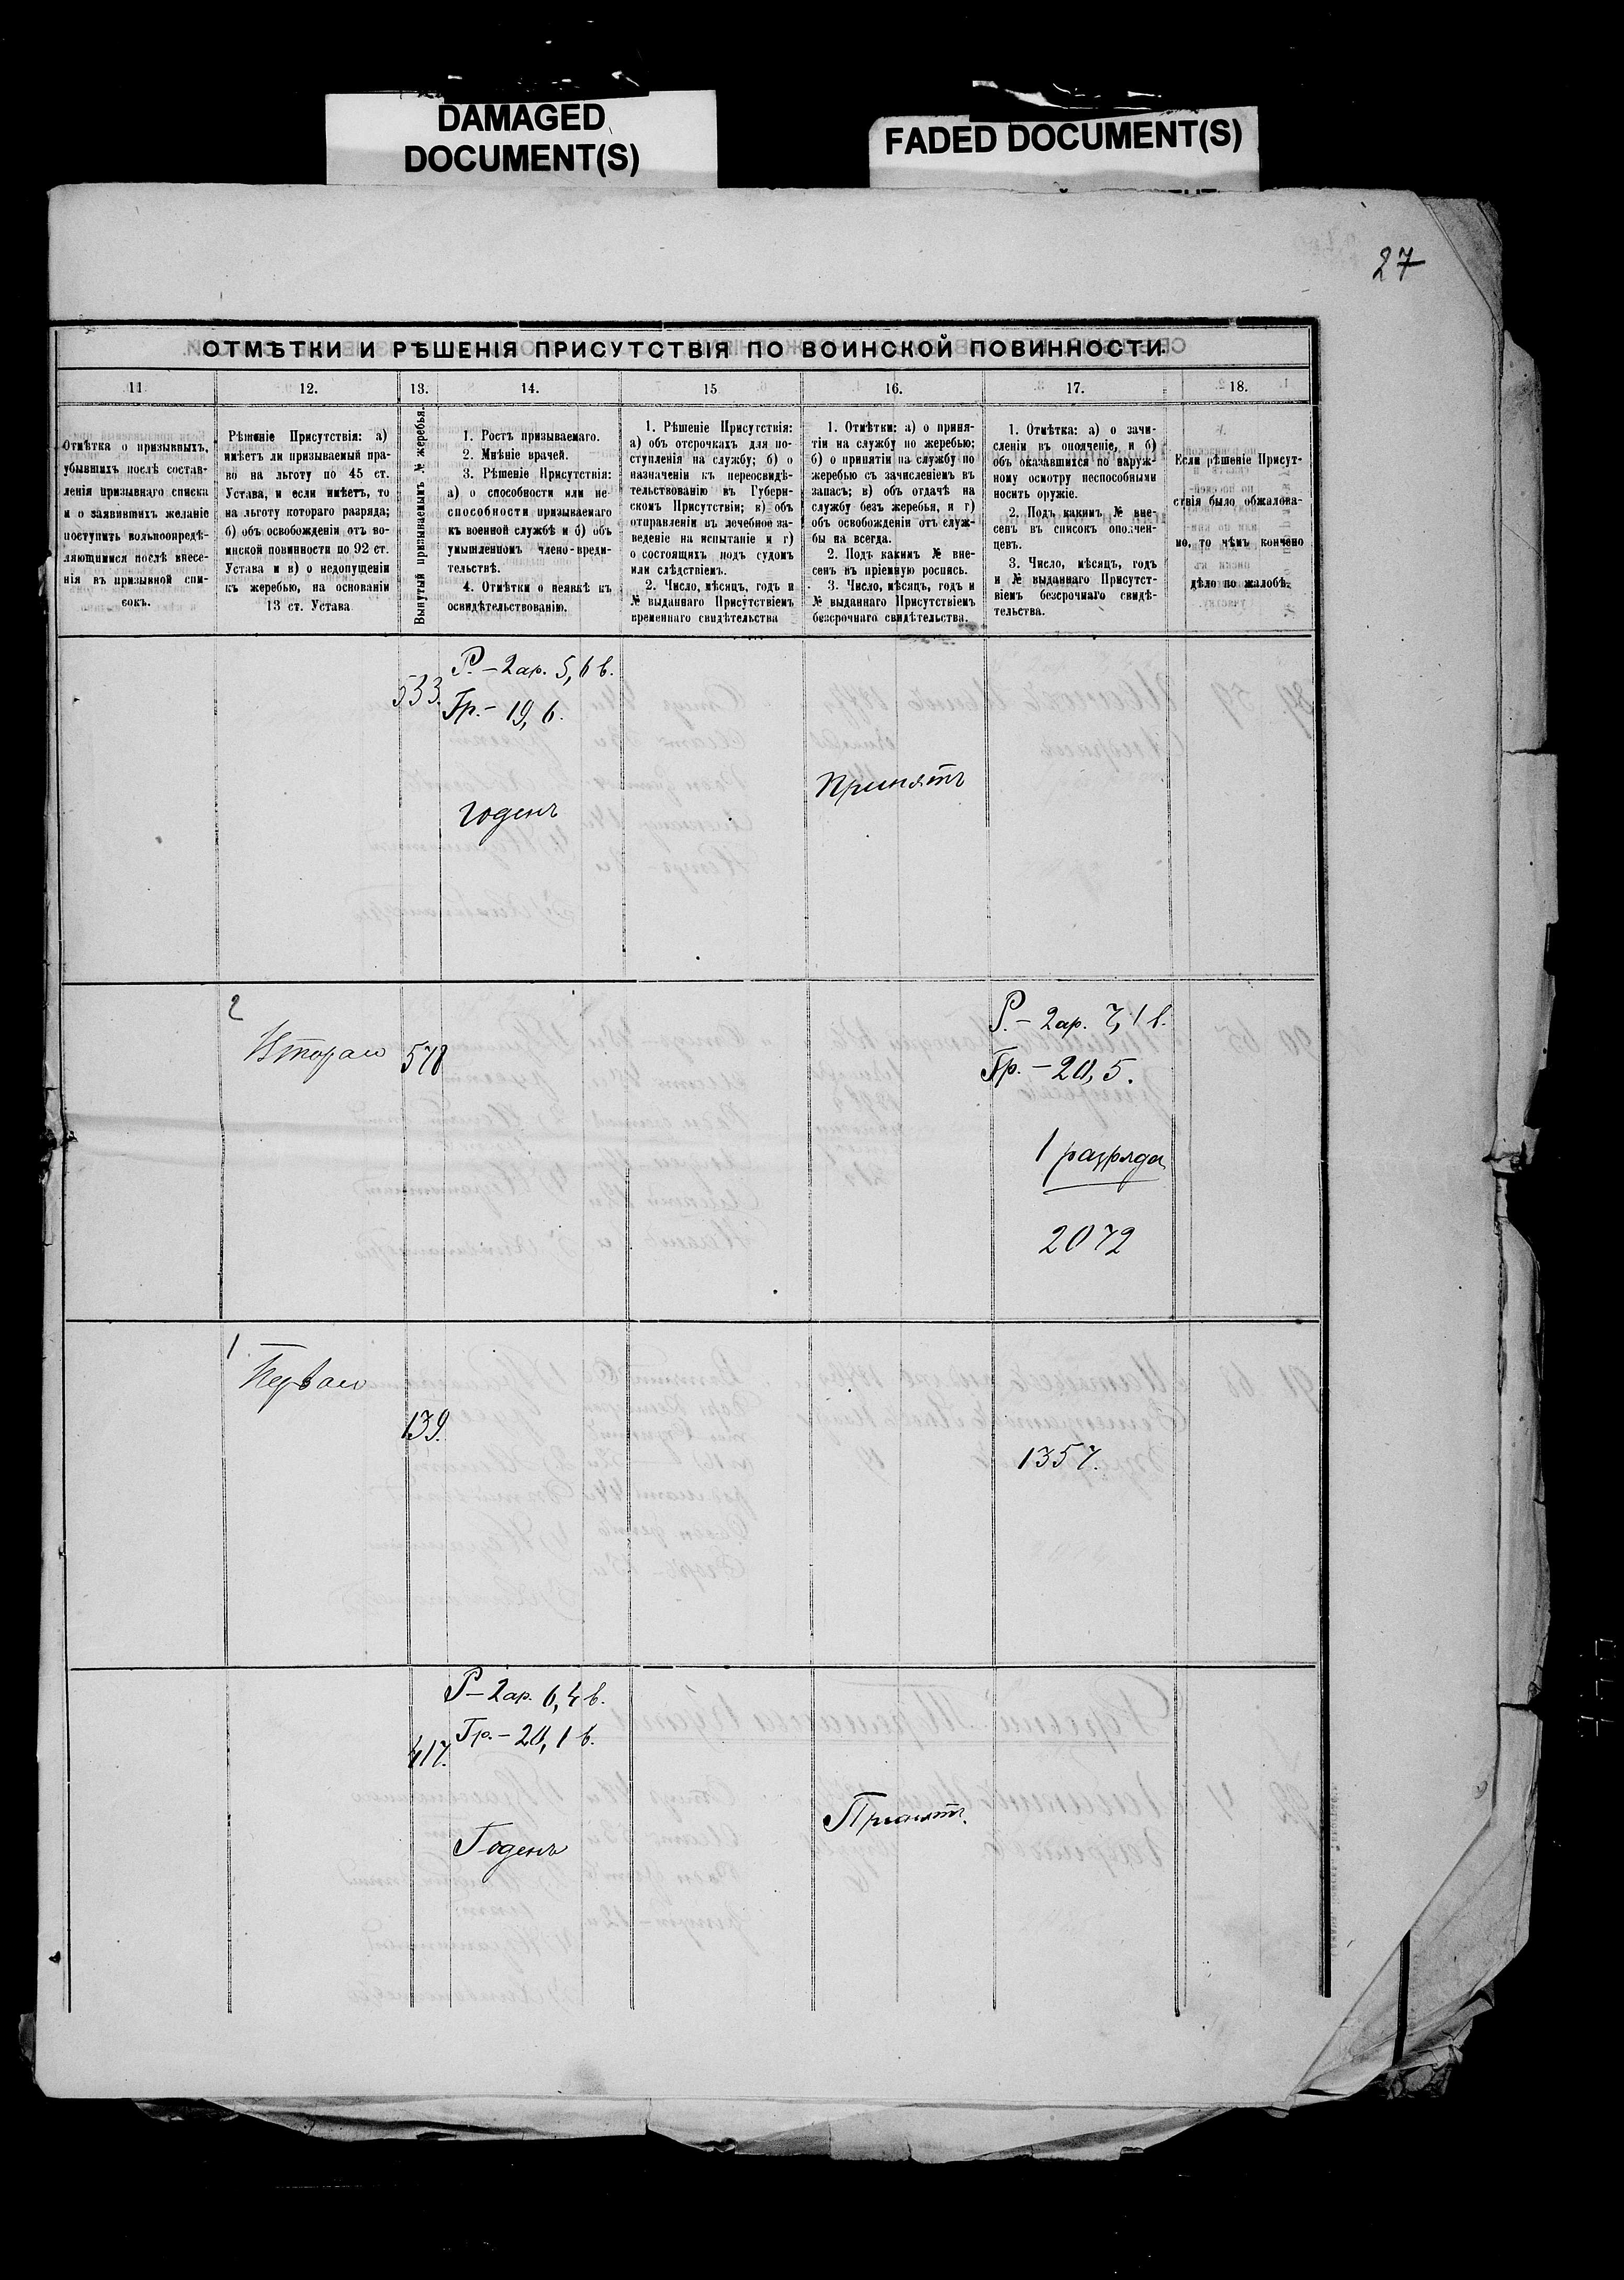 DAMAGED
DOCUMENT(S)
FADED DOCUMENT(S)
27
ОТМѢТКИ И РѢШЕНІЯ ПРИСУТСТВІЯ ПО ВОИНСКОЙ ПОВИННОСТИ.
11
12.
13.
14.
15
16.
17.
18.
Отмѣтка о призывныхъ,
убывшихъ послѣ состав-
ленія призывнаго списка
и о заявившихъ желаніе
поступить вольноопредѣ-
ляющимися послѣ внесе-
нія въ призывной спи-
сокъ.
Рѣшеніе Присутствія: а)
имѣетъ ли призываемый пра-
во на льготу по 45 ст.
Устава, и если имѣетъ, то
на льготу котораго разряда;
б) объ освобожденіи отъ во-
инской повинности по 92 ст.
Устава и в) о недопущеніи
къ жеребью, на основаніи
13 ст. Устава
Вынутый призываемымъ № жеребья.
1. Ростъ призываемаго.
2. Мнѣніе врачей.
3. Рѣшеніе Присутствія:
а) о способности или не-
способности призываемаго
къ военной службѣ и б) объ
умышленномъ члено-вреди-
тельствѣ.
4. Отмѣтки о неявкѣ къ
освидѣтельствованію.
1. Рѣшеніе Присутствія:
а) объ отсрочкахъ для по-
ступленія на службу; б) о
назначеніи къ переосвидѣ-
тельствованію въ Губерн-
скомъ Присутствіи; в) объ
отправленіи въ лечебное за-
веденіе на испытаніе и г)
о состоящихъ подъ судомъ
или слѣдствіемъ.
2. Число, мѣсяцъ, годъ и
№ выданнаго Присутствіемъ
временнаго свидѣтельства
1. Отмѣтки: а) о приня-
тіи на службу по жеребью;
б) о принятіи на службу по
жеребью съ зачисленіемъ въ
запасъ; в) объ отдачѣ на
службу безъ жеребья, и г)
объ освобожденіи отъ служ-
бы на всегда.
2. Подъ какимъ № вне-
сенъ въ пріемную роспись.
3. Число, мѣсяцъ, годъ и
№ выданнаго Присутствіемъ
безсрочнаго свидѣтельства.
1. Отмѣтка: а) о зачи-
сленіи въ ополченіе, и б)
объ оказавшихся по наруж-
ному осмотру неспособными
носить оружіе.
2. Подъ какимъ № вне-
сенъ въ списокъ ополчен-
цевъ.
3. Число, мѣсяцъ, годъ
и № выданнаго Присутст-
віемъ безсрочнаго свидѣ-
тельства.
Если рѣшеніе Присут-
ствія было обжалова-
но, то чѣмъ кончено
дѣло по жалобѣ.
533.
Р. – 2 ар. 5,6 в.
Гр. – 19,6.
годенъ
Принятъ
2
Вторая
578
Р. – 2 ар. 7,1 в.
Гр. – 20,5.
1 разряда
2072
1
Первая
139.
1357.
417.
Р – 2 ар. 6,4 в.
Гр. – 20,1 в.
Годенъ
Принятъ.